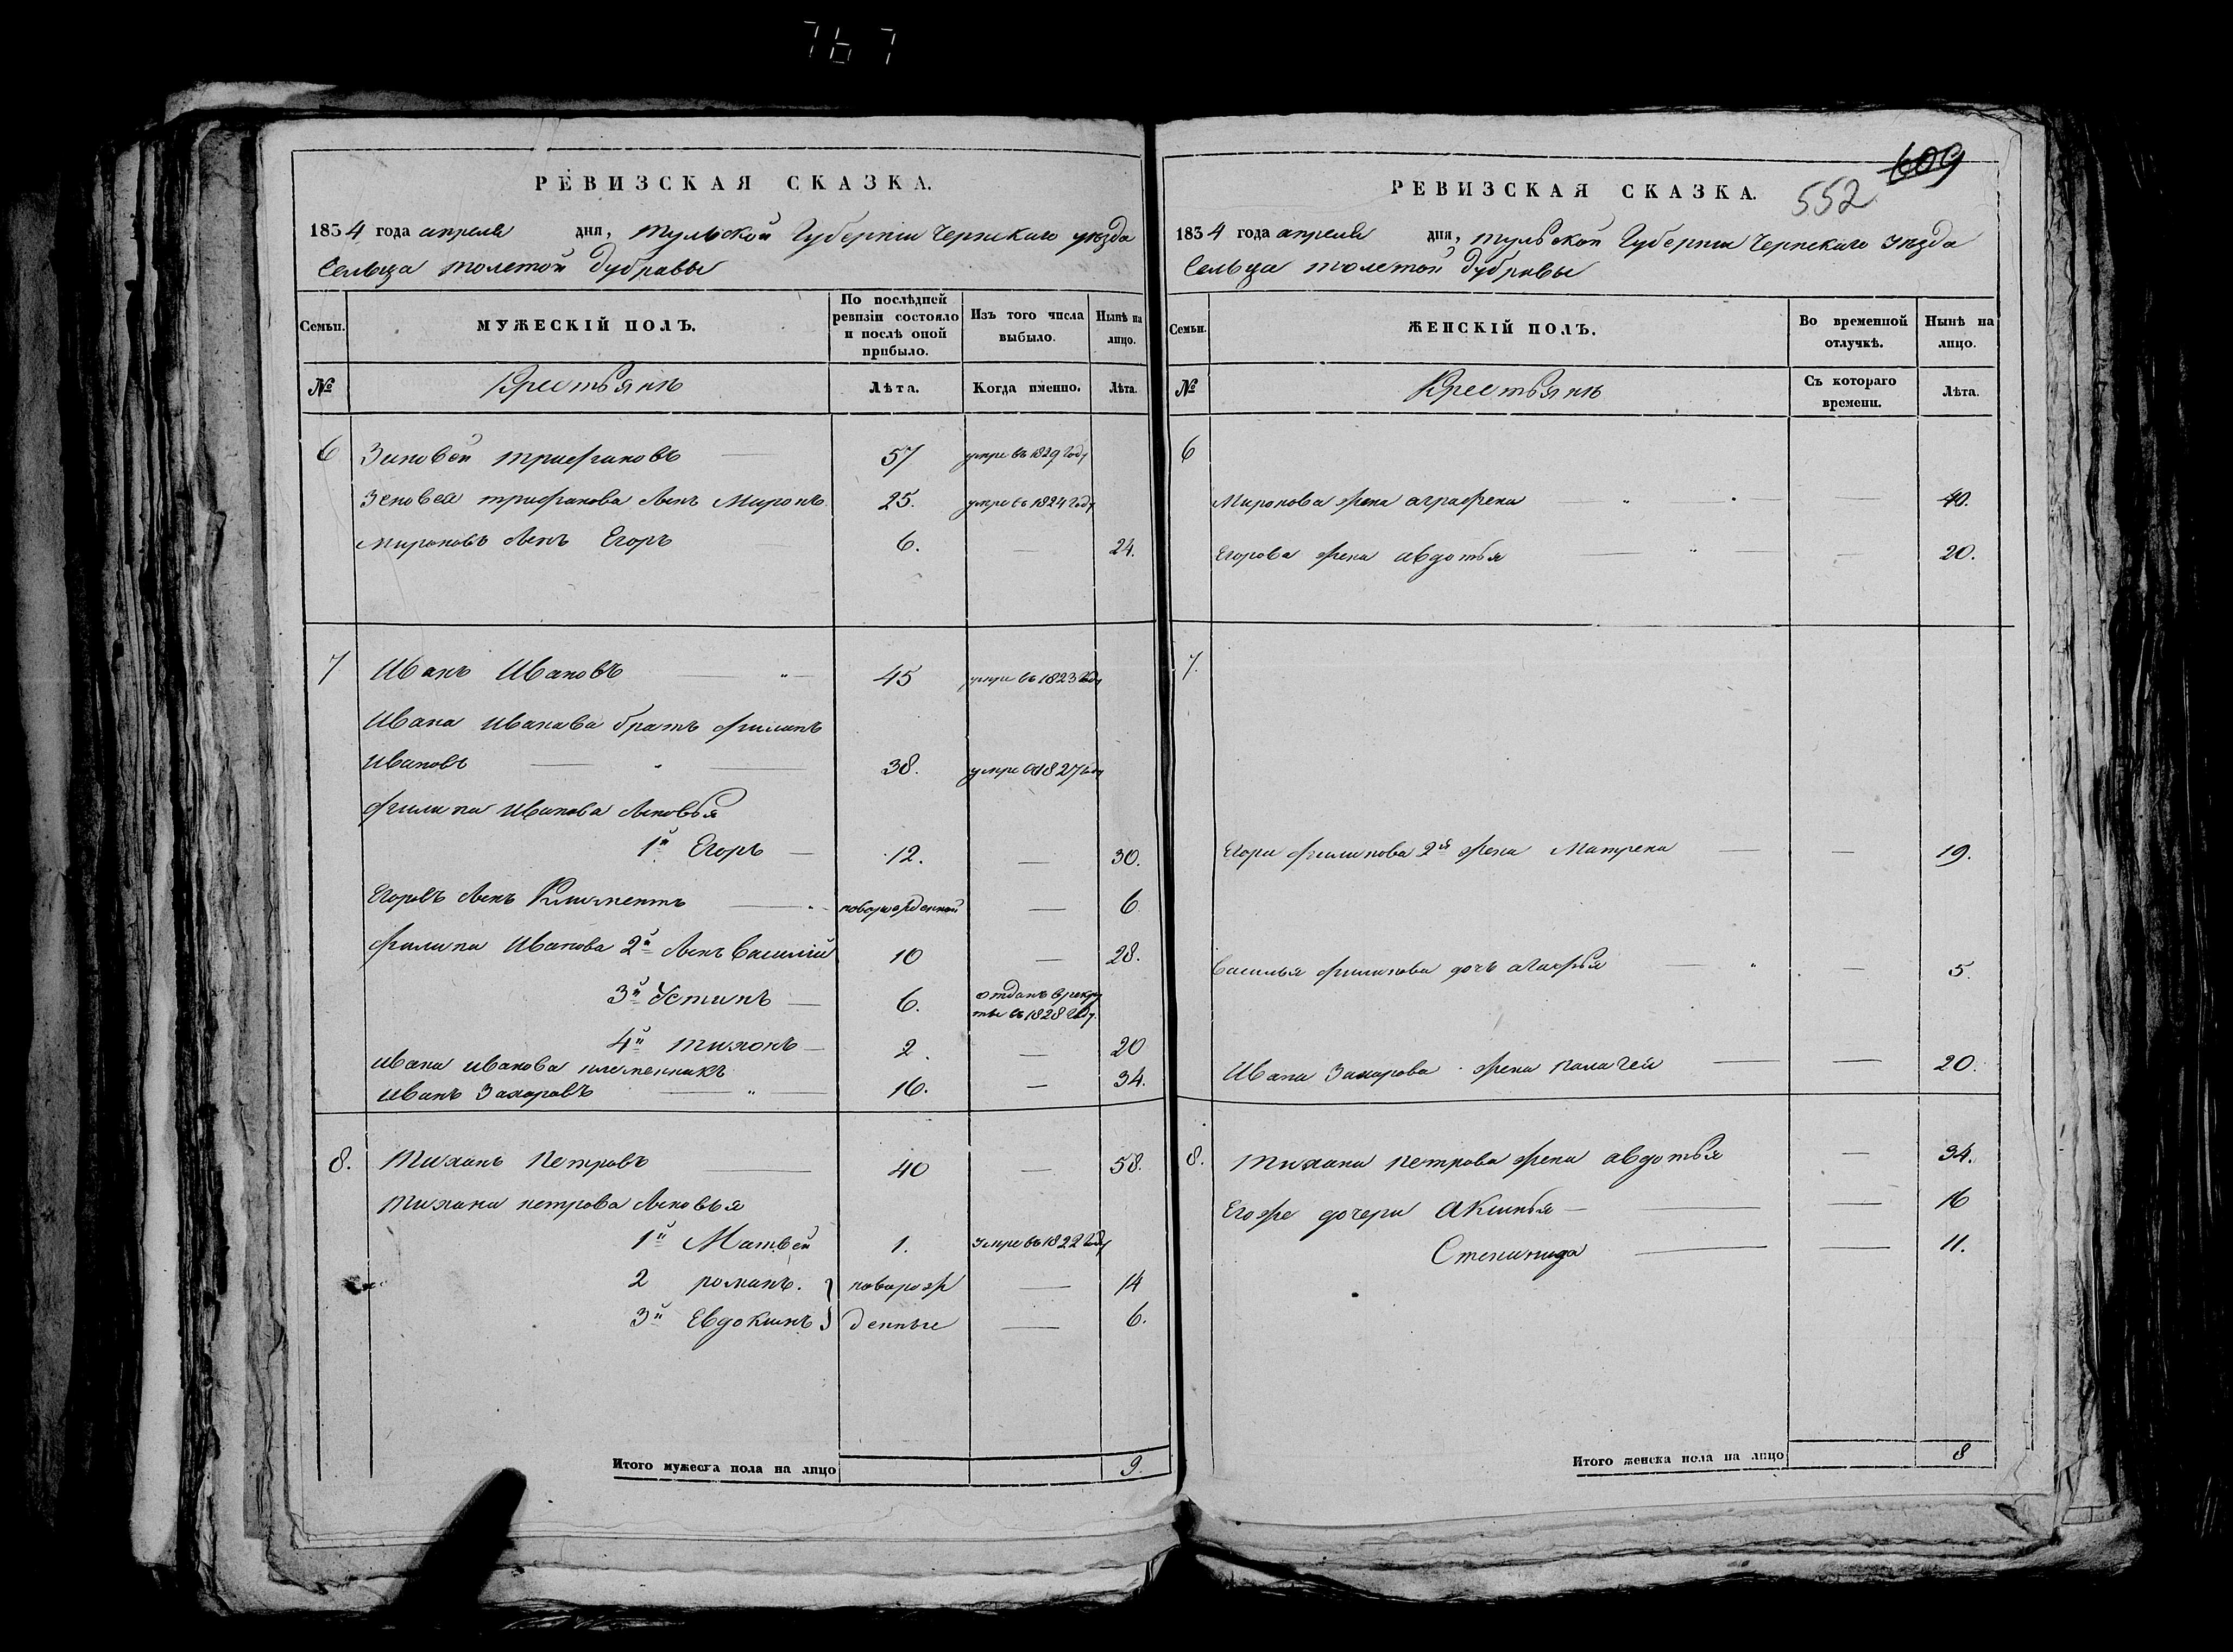 767
РЕВИЗСКАЯ СКАЗКА.
1834 года апреля дня, тульской Губерніи Чернскаго уѣзда
Сельца толстой дубравы
Семьи.
МУЖЕСКІЙ ПОЛЪ.
По послѣдней ревизіи состояло и послѣ оной прибыло.
Изъ того числа выбыло.
Нынѣ на лицо.
№ Крестьянѣ Лѣта. Когда именно. Лѣта.
6 Зиновей трифановъ 57 умре въ 1829 Году
Зеновея трифанова Сынъ Миронъ 25. умре въ 1824 Году
мироновъ Сынъ Егоръ 6. — 24.
7 Иванъ Ивановъ 45 умре въ 1823 Году
Ивана Иванава братъ филипъ
Ивановъ 38. умре въ 1827 году
филипа Иванова Сыновья
1й Егоръ 12. — 30.
Егоровъ Сынъ Климентъ новорожденной — 6
филипа Иванова 2й Сынъ Василій 10 — 28.
3й Устинъ 6. отданъ в рекру
ты въ 1828 Году.
4й тихонъ 2. — 20
Ивана Иванова племенникъ
Иванъ Захаровъ 16. — 34.
8. Тиханъ Петровъ 40 — 58.
Тихана петрова Сыновья
1й Матвей 1. Умре въ 1822 Году
2 романъ. новорож — 14
3й Евдокимъ денные — 6.
Итого мужеска пола на лицо 9.
609
552
РЕВИЗСКАЯ СКАЗКА.
1834 года апреля дня, тульской Губерніи Чернскаго уѣзда
Сельца толстой дубравы
Семьи.
ЖЕНСКІЙ ПОЛЪ.
Во временной отлучкѣ.
Нынѣ на лицо.
№ Крестьянѣ Съ котораго времени. Лѣта.
6
Миронова жена аграфена — 40.
Егорова жена авдотья — 20.
7.
Егора филипова 2я жена Матрена — 19.
Василья филипова дочь агафья — 5.
Ивана Захарова жена палагея — 20.
8. Тихана петрова жена авдотья — 34.
Егоже дочери Акинья — 16
Степанида — 11.
Итого женска пола на лицо 8